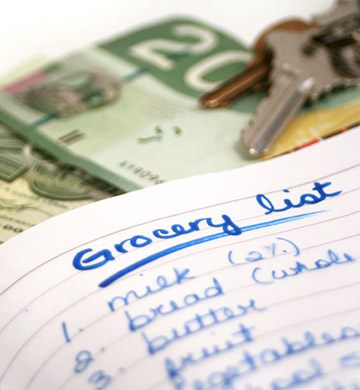 20
Grocery list
1. milk (2%)
2. bread (whole
3. butter
fruit
vegetables